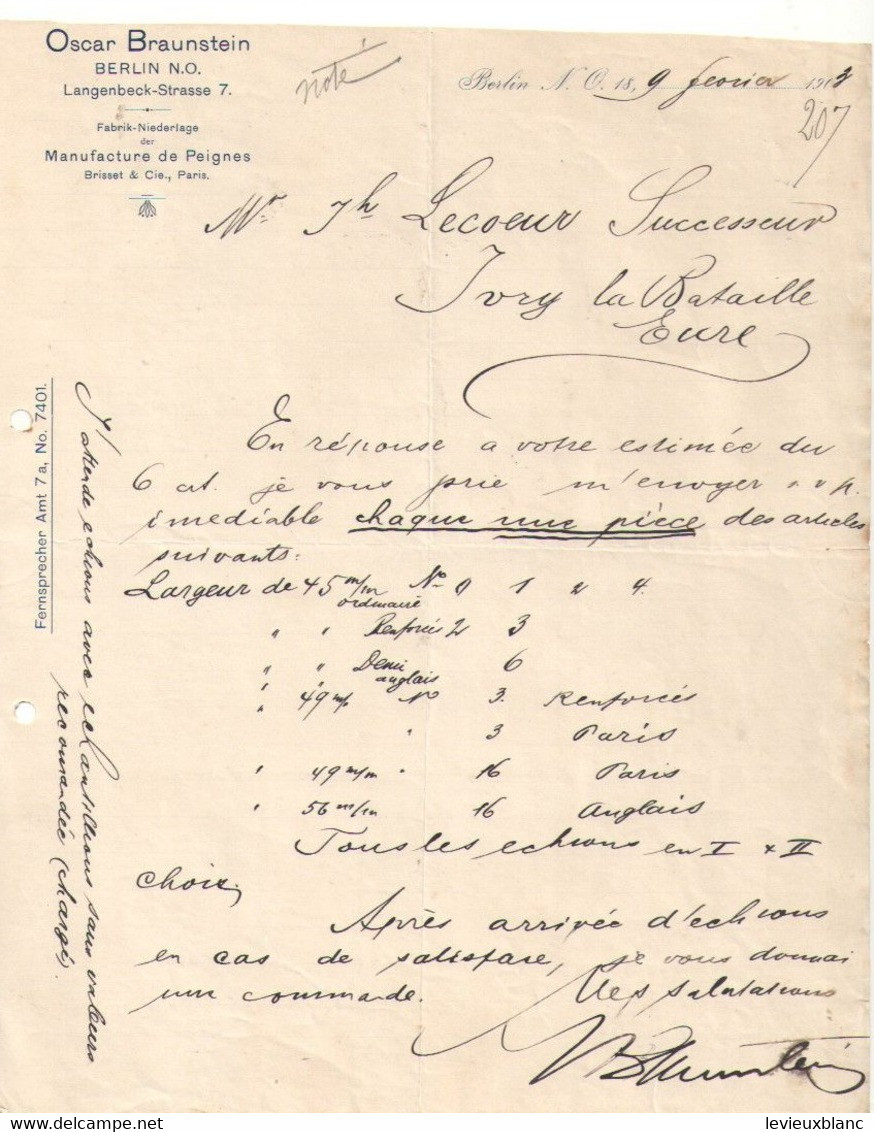 Oscar Braunstein
BERLIN N.O.
Langenbeck-Strasse 7.
Fabrik-Niederlage
der
Manufacture de Peignes
Brisset & Cie., Paris.
noté
Berlin N. O. 18, 9 fevrier 1913
207
Mr. Jh Lecoeur Successeur
Ivry la Bataille
Eure
En réponse a votre estimée du
6 crt. je vous prie m'envoyer s.v.p.
imediable chaque une pièce des articles
suivants:
Largeur de 45 m/m No 0 1 2 4.
ordinaire
" " Renforcés 2 3
" " Demi 6
anglais
" 49 m/m No 3. Renforcés
" 3 Paris
" 49 m/m " 16 Paris
" 56 m/m 16 Anglais
Tous les echions en I & II
choix,
Après arrivée d'echions
en cas de satisfare, je vous donnai
une commande. Mes salutations
OBraunstein
Fernsprecher Amt 7a, No. 7401.
J'attende echions avec echantillions sans valeurs
recomandée (chargé).
levieuxblanc